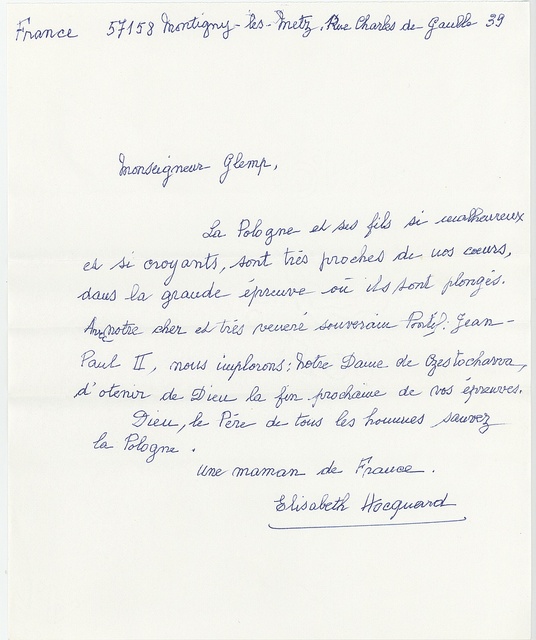 France 57158 Montigny-les-Metz, Rue Charles de Gaulle 39
Monseigneur Glemp,
La Pologne et ses fils si malheureux
et si croyants, sont très proches de nos cœurs,
dans la grande épreuve où ils sont plongés.
Avec notre cher et très vénéré souverain Pontif. Jean-
Paul II, nous implorons: Notre Dame de Czestochawa,
d'otenir de Dieu la fin prochaine de vos épreuves.
Dieu, le Père de tous les hommes sauvez
la Pologne.
Une maman de France.
Elisabeth Hocquard